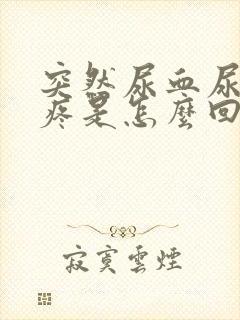 突然尿血尿
疼是怎麼回
寂寞雲煙